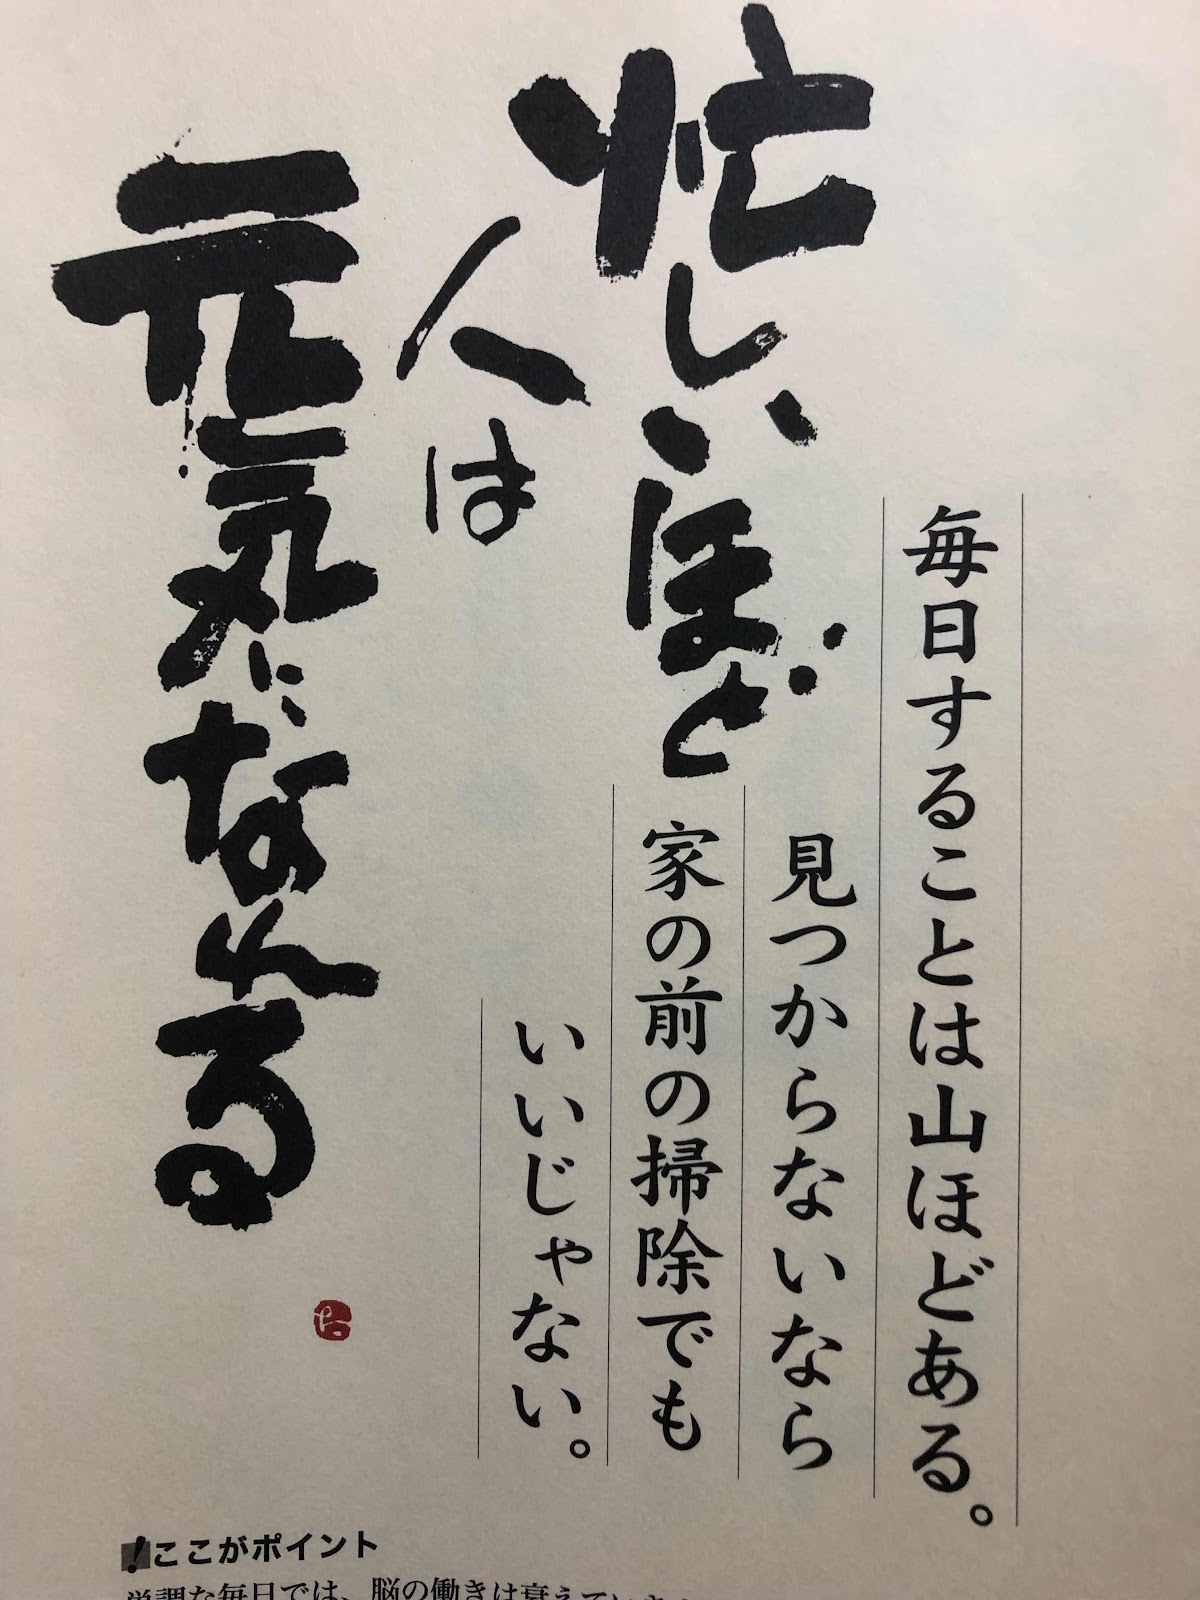 忙しいほど
人は
元気になれる
毎日することは山ほどある。
見つからないなら
家の前の掃除でも
いいじゃない。
!ここがポイント
単調な毎日では、脳の働きは衰えていき